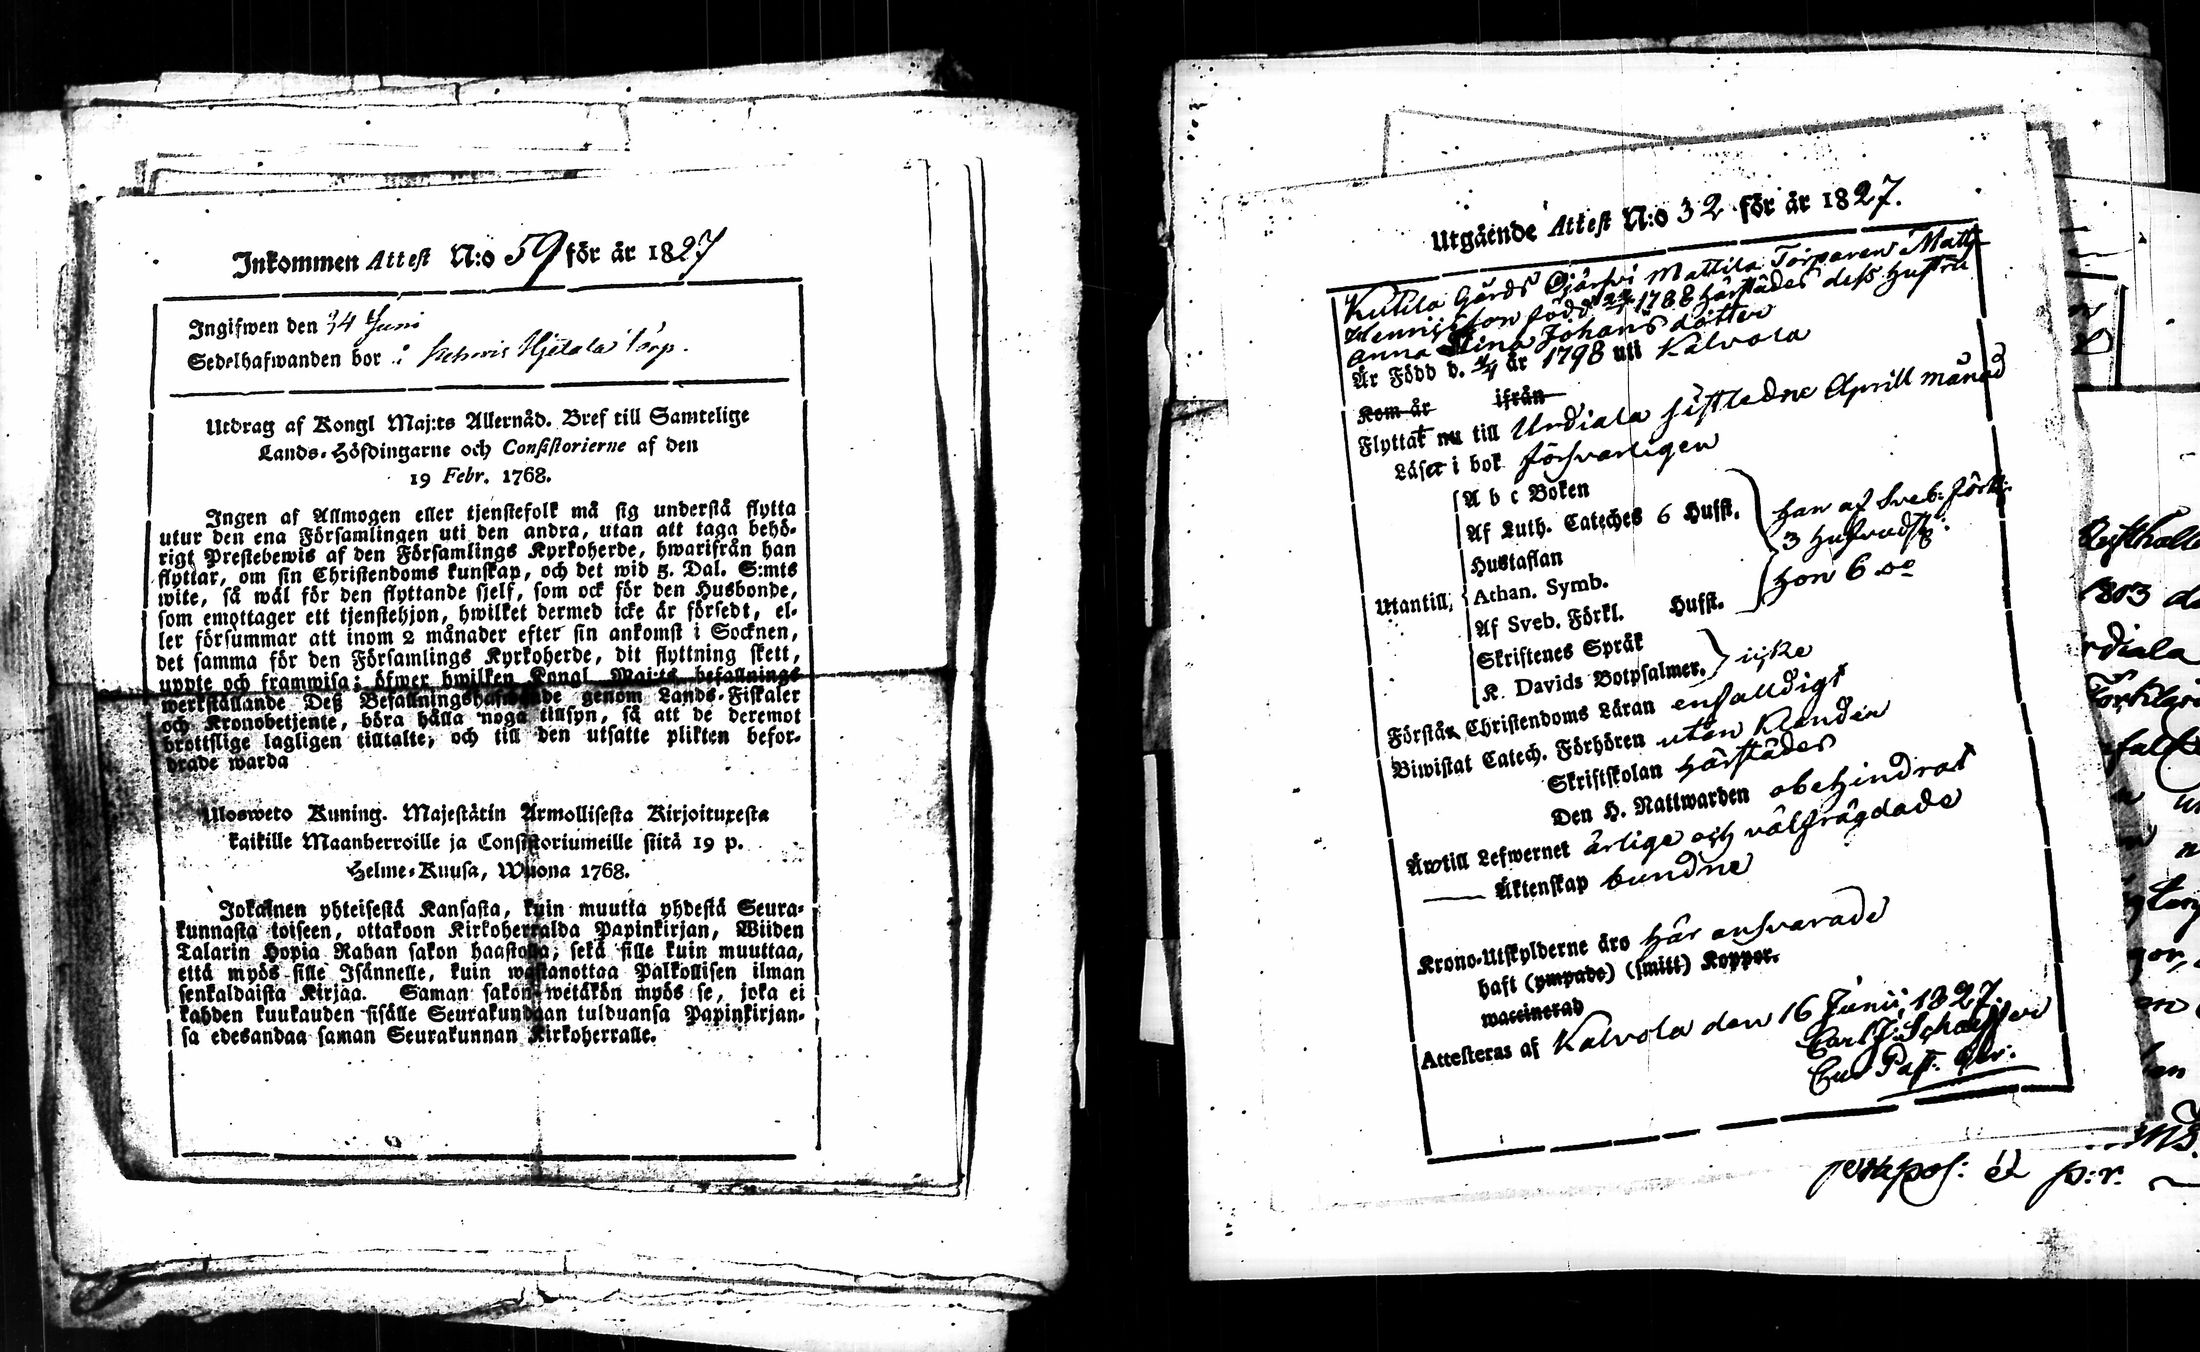 Inkommen Attest N:o 59 för år 1827
Ingifwen den 24 Juni
Sedelhafwanden bor i Hjetala torp.
Utdrag af Kongl Maj:ts Allernåd. Bref till Samtelige
Lands-Höfdingarne och Consistorierne af den
19 Febr. 1768.
Ingen af Allmogen eller tjenstefolk må sig understå flytta
utur den ena Församlingen uti den andra, utan att taga behö-
rigt Prestebewis af den Församlings Kyrkoherde, hwarifrån han
flyttar, om sin Christendoms kunskap, och det wid 5. Dal. S:mts
wite, så wäl för den flyttande sjelf, som ock för den Husbonde,
som emottager ett tjenstehjon, hwilket dermed icke är försedt, el-
ler försummar att inom 2 månader efter sin ankomst i Socknen,
det samma för den Församlings Kyrkoherde, dit flyttning skett,
uppte och framwisa; öfwer hwilken Kongl Maj:ts befallnings
werkställande Deß Befallningshafwande genom Lands-Fiskaler
och Kronobetjente, böra hålla noga tillsyn, så att de deremot
brottslige lagligen tilltalte, och till den utsatte plikten befor-
drade warda
Ulosweto Kuning. Majestätin Armollisesta Kirjoituxesta
kaikille Maanherroille ja Consistoriumeille siitä 19 p.
Helme-Kuusa, Wuona 1768.
Jokainen yhteisestä Kansasta, kuin muutta yhdestä Seura-
kunnasta toiseen, ottakoon Kirkoherralda Papinkirjan, Wiiden
Talarin Hopia Rahan sakon haastolla; sekä sille kuin muuttaa,
että myös sille Isännelle, kuin wastanottaa Palkollisen ilman
senkaldaista Kirjaa. Saman sakon wetäkön myös se, joka ei
kahden kuukauden sisälle Seurakundaan tulduansa Papinkirjan-
sa edesandaa saman Seurakunnan Kirkoherralle.
Utgående Attest N:o 32 för år 1827.
Kutila Gårds Mattila Torparen Matts
Henricsson född 1788 härstädes dess hustru
Anna Stina Johans dotter
Är Född d. 4/4 år 1798 uti Kalvola
Kom år ifrån
Flyttat nu till Urdiala sistledne Aprill månad
Läser i bok försvarligen
A b c Boken
Af Luth. Cateches 6 Hufst. han af Sveb: förkl:
Hustaflan 3 hufvudst:
Utantill, Athan. Symb. hon 6 do
Af Sveb. Förkl. Hufst.
Skriftenes Språk
K. Davids Botpsalmer. icke
Förstår Christendoms Läran enfalldigt
Biwistat Catech. Förhören utan klander
Skriftskolan härstädes
Den H. Nattwarden obehindrat
Äro till Lefwernet ärlige och välfrägdade
Äktenskap bundne
Krono-Utskylderne äro här ansvarade
haft (ympade) (smitt) Koppor.
waccinerad
Attesteras af Kalvola den 16 Junii 1827.
Carl J: Schaeffer
Past: